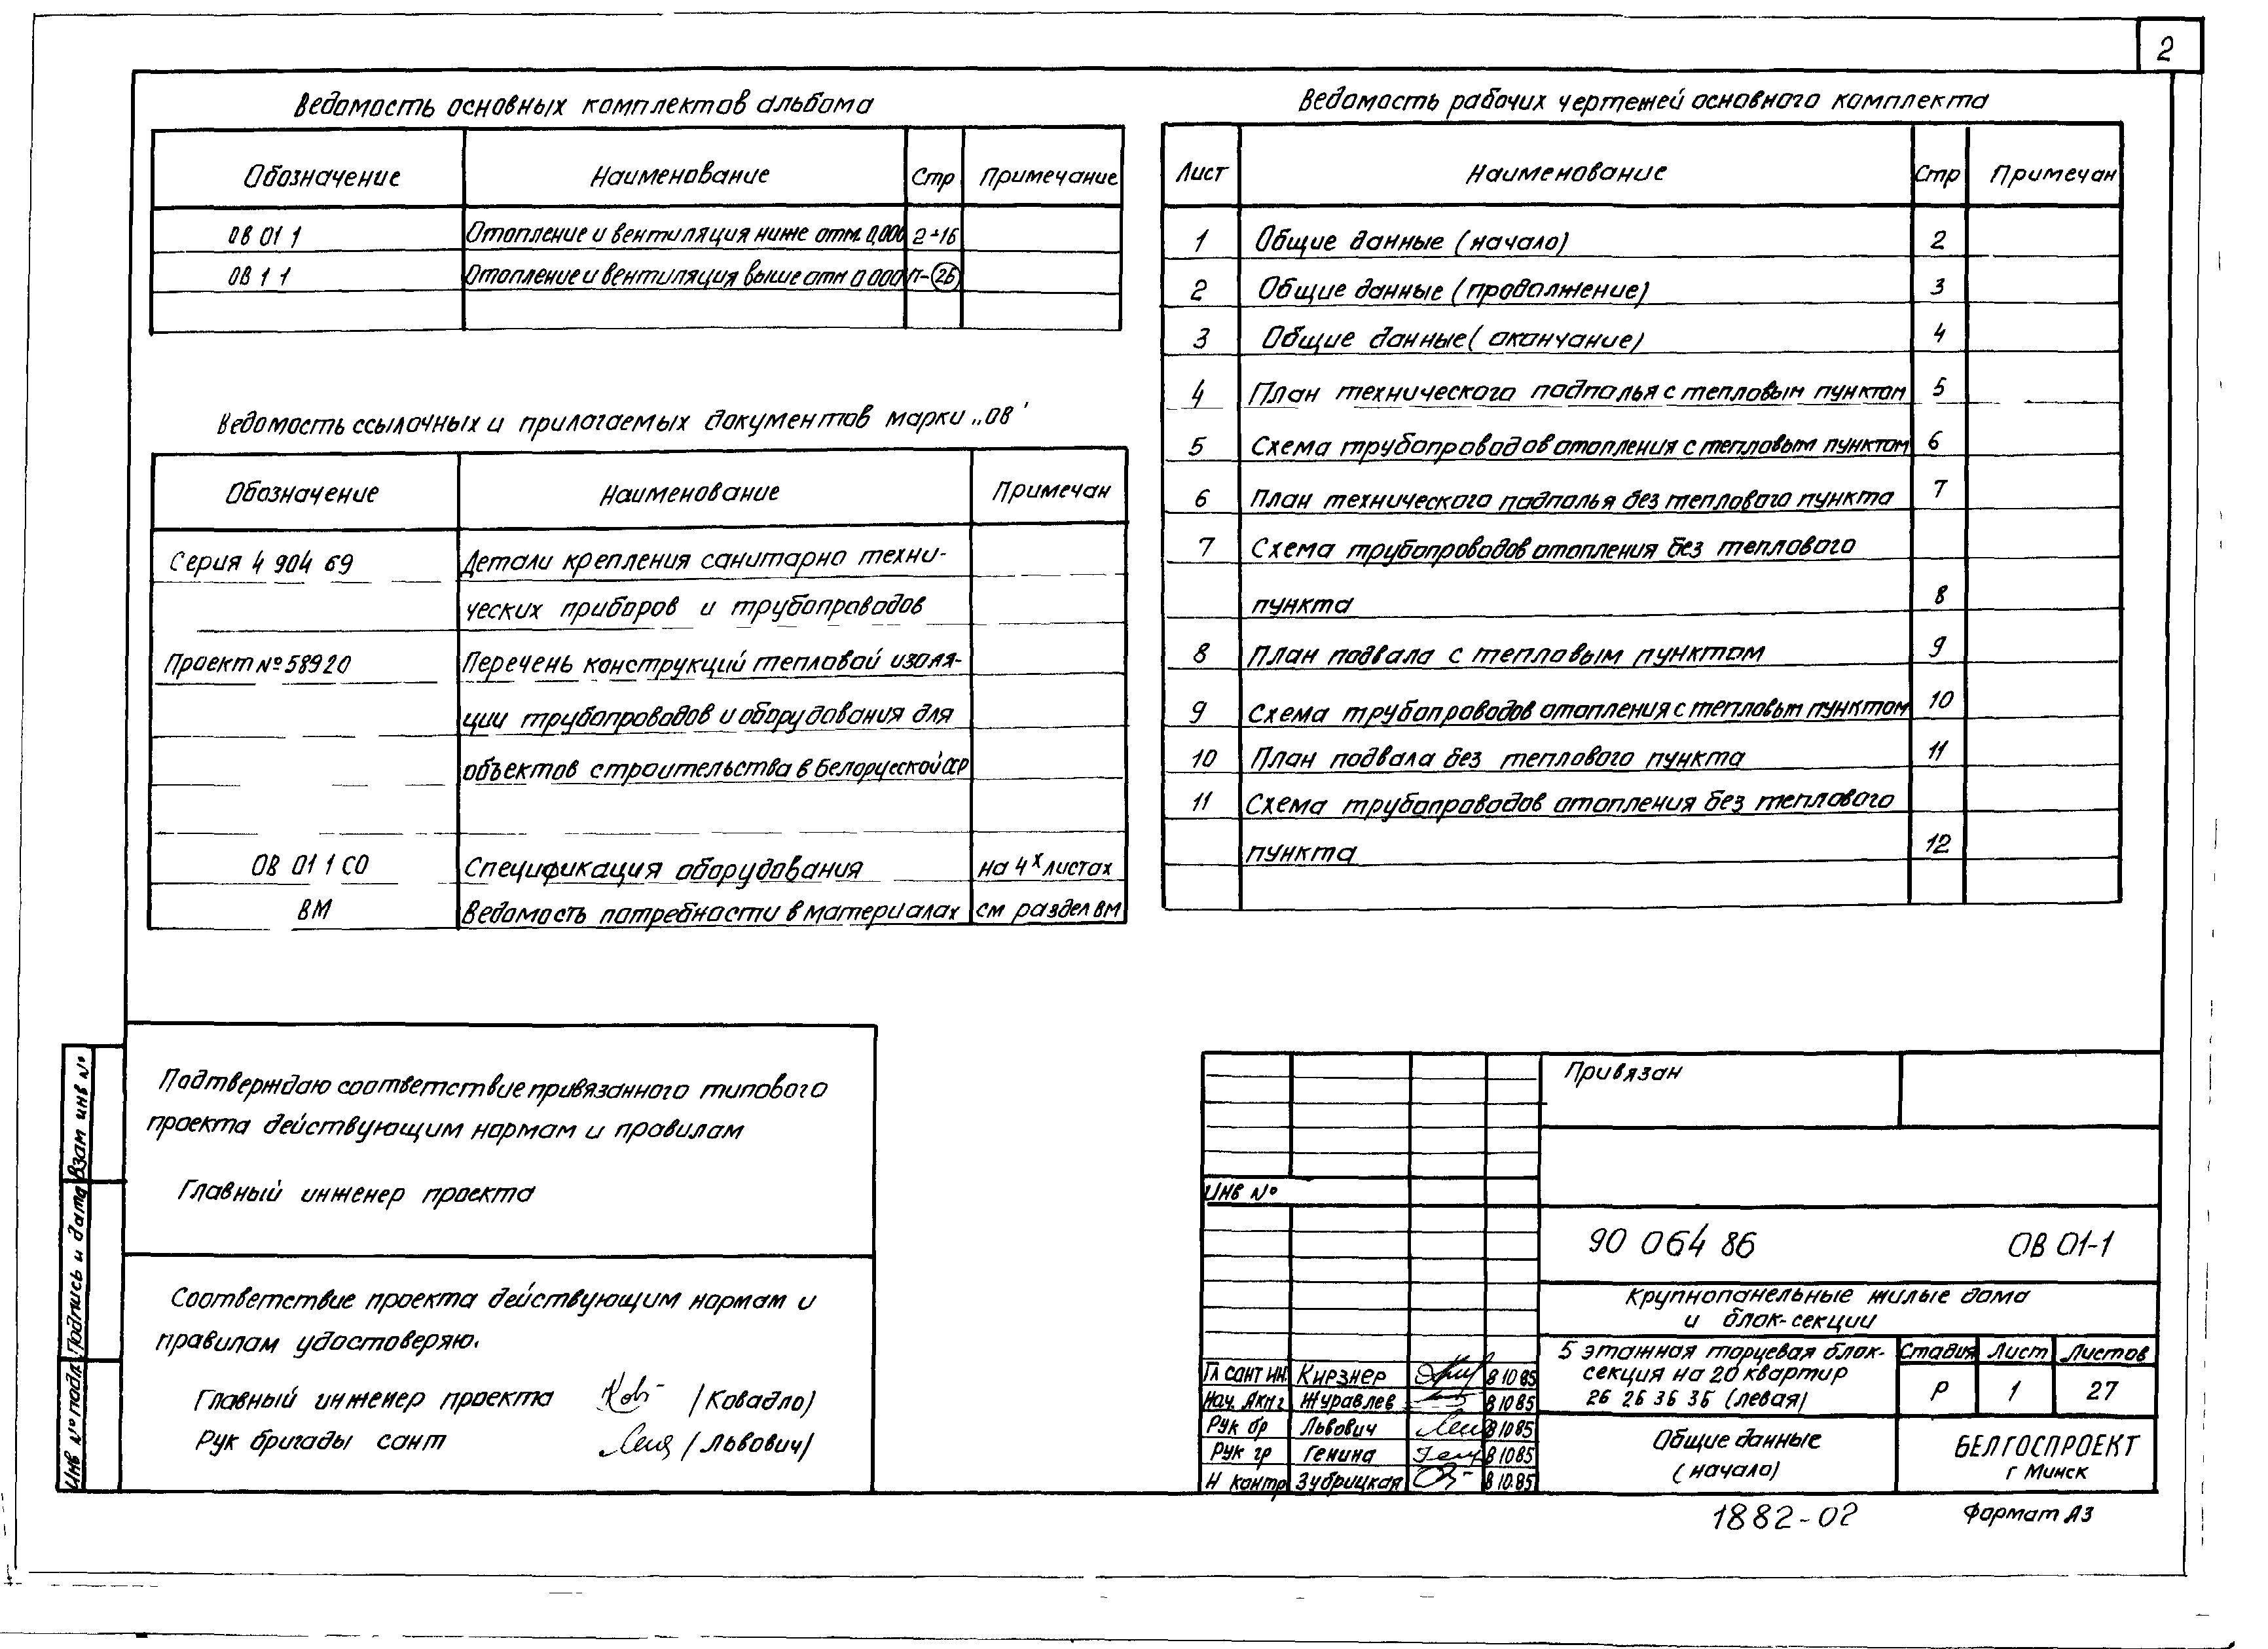 2
Ведомость основных комплектов альбома
Обозначение Наименование Стр Примечание
ОВ 01 1 Отопление и вентиляция ниже отм. 0,000 2-16
ОВ 1 1 Отопление и вентиляция выше отм 0 000 26
Ведомость ссылочных и прилагаемых документов марки „ОВ"
Обозначение Наименование Примечан
Серия 4 904 69 Детали крепления санитарно техни-
ческих приборов и трубопроводов
Проект №58920 Перечень конструкций тепловой изоля-
ции трубопроводов и оборудования для
объектов строительства в Белорусской ССР
ОВ 01 1 СО Спецификация оборудования на 4х листах
ВМ Ведомость потребности в материалах см раздел ВМ
Ведомость рабочих чертежей основного комплекта
Лист Наименование Стр Примечан
1 Общие данные (начало) 2
2 Общие данные (продолжение) 3
3 Общие данные (окончание) 4
4 План технического подполья с тепловым пунктом 5
5 Схема трубопроводов отопления с тепловым пунктом 6
6 План технического подполья без теплового пункта 7
7 Схема трубопроводов отопления без теплового
пункта 8
8 План подвала с тепловым пунктом 9
9 Схема трубопроводов отопления с тепловым пунктом 10
10 План подвала без теплового пункта 11
11 Схема трубопроводов отопления без теплового
пункта 12
Подтверждаю соответствие привязанного типового
проекта действующим нормам и правилам
Главный инженер проекта
Соответствие проекта действующим нормам и
правилам удостоверяю.
Главный инженер проекта /Ковадло/
Рук бригады сант /Львович/
Взам инв №
Подпись и дата
Инв № подл
Привязан
Инв №
90 064 86 ОВ 01-1
Крупнопанельные жилые дома
и блок-секции
5 этажная торцевая блок-
секция на 20 квартир
2б 2б 3б 3б (левая)
Стадия Лист Листов
Р 1 27
Гл сант ин. Кирзнер 8 10 85
Нач. Журавлев 8 10 85
Рук бр Львович 8 10 85
Рук гр Генина 8 10 85
Н контр Зубрицкая 8 10.85
Общие данные
(начало)
БЕЛГОСПРОЕКТ
г Минск
1882-02
Формат А3